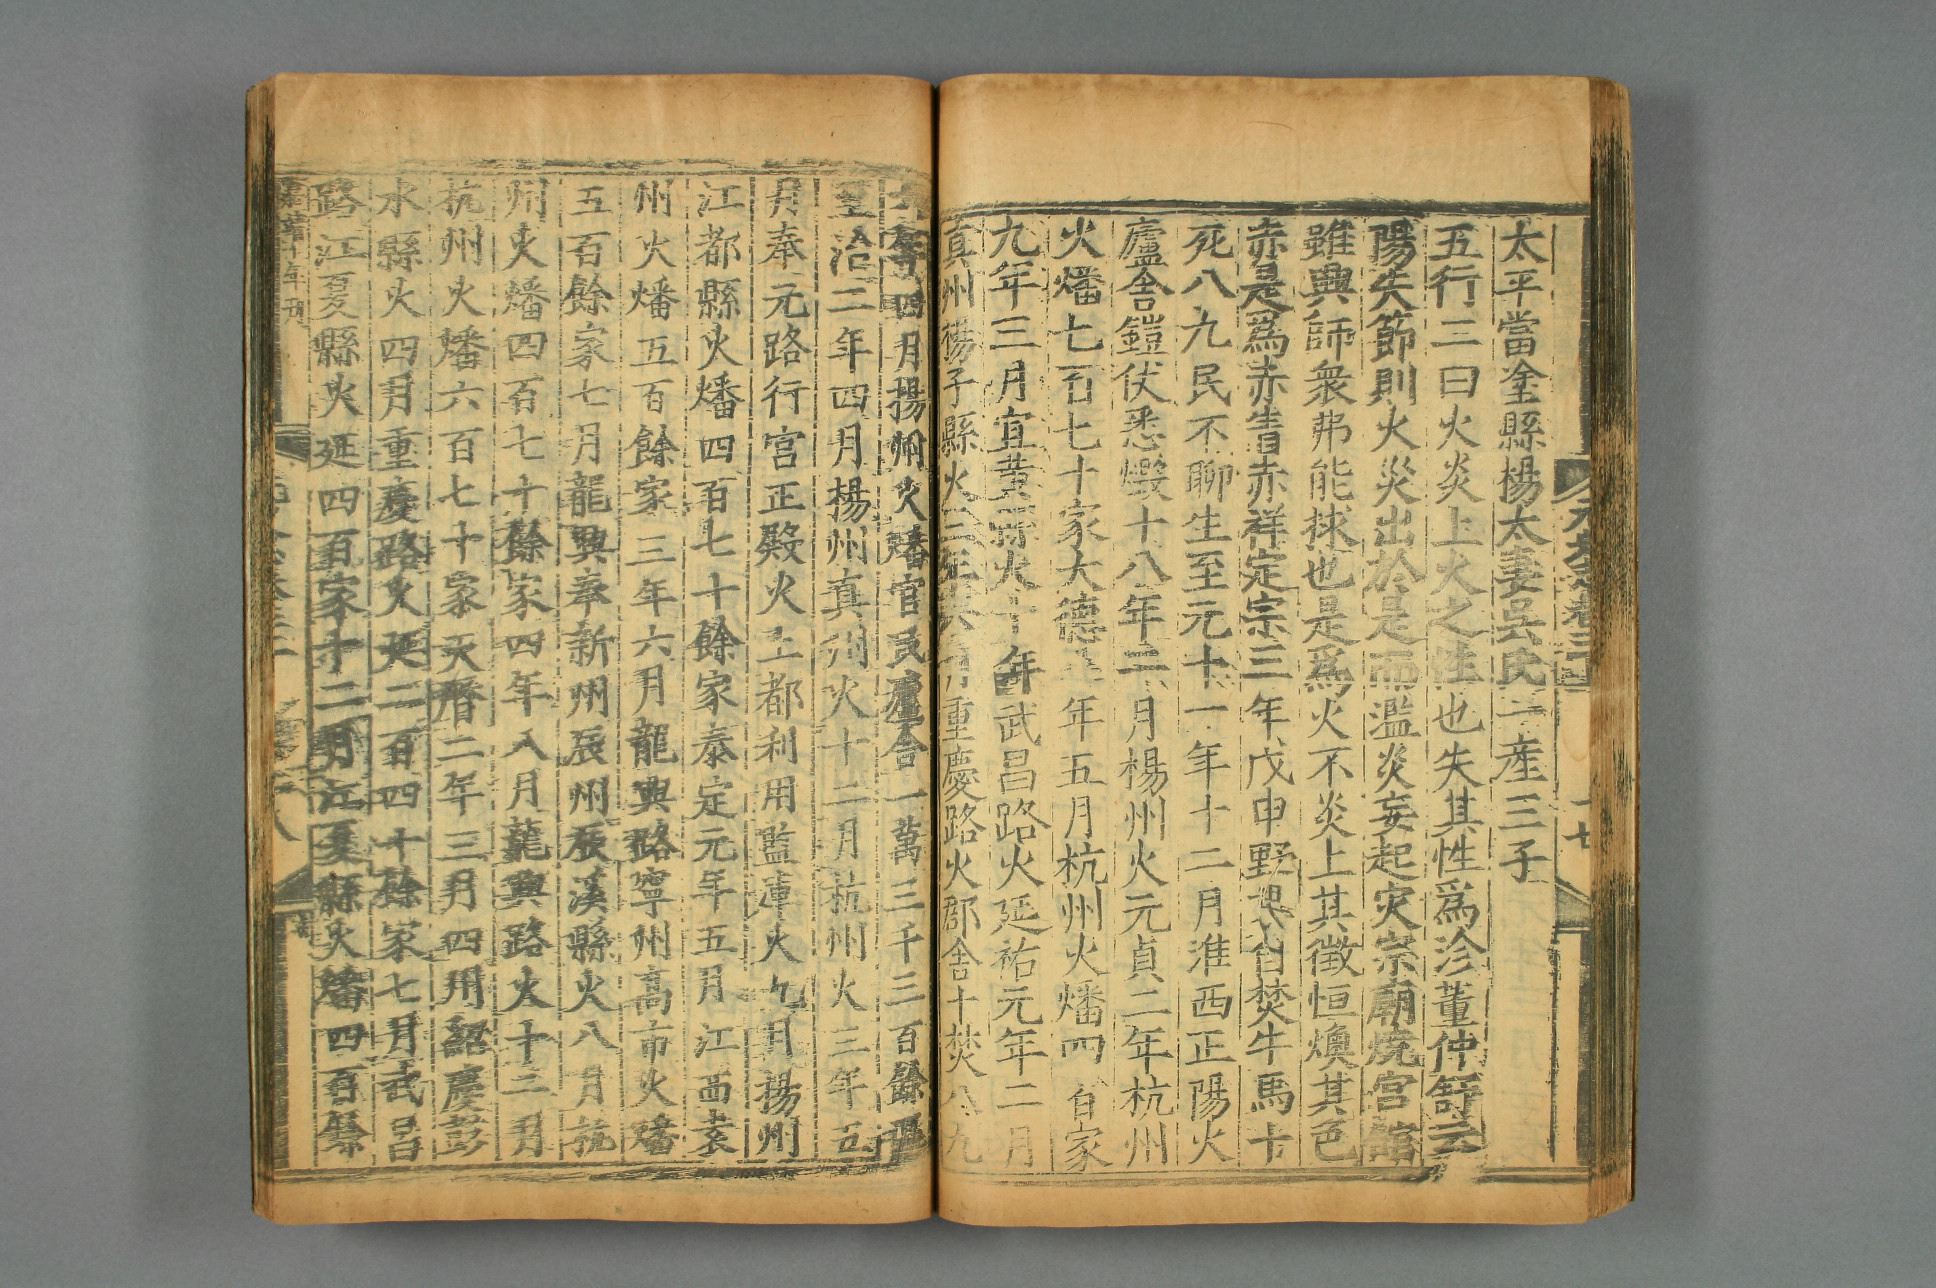 太平當塗縣楊太妻吳氏一產三子
五行二曰火炎上火之性也失其性爲沴董仲舒云
陽失節則火災出於是而濫炎妄起灾宗廟燒宮館
雖興師衆弗能救也是爲火不炎上其徵恒燠其色
赤是爲赤眚赤祥定宗三年戊申野草自焚牛馬十
死八九民不聊生至元十一年十二月淮西正陽火
廬舍鎧仗悉燬十八年二月楊州火元貞二年杭州
火燔七百七十家大德八年五月杭州火燔四百家
九年三月宜黃縣火十年武昌路火延祐元年二月
真州楊子縣火三年六月重慶路火郡舍十焚八九
四月揚州火燔官民廬舍一萬三千三百餘區
至治二年四月揚州真州火十二月杭州火三年五
月奉元路行宮正殿火上都利用監庫火九月揚州
江都縣火燔四百七十餘家泰定元年五月江西袁
州火燔五百餘家三年六月龍興路寧州高市火燔
五百餘家七月龍興奉新州辰州辰溪縣火八月杭
州火燔四百七十餘家四年八月龍興路火十二月
杭州火燔六百七十家天曆二年三月四川紹慶彭
水縣火四月重慶路火延二百四十餘家七月武昌
路江夏縣火延四百家十二月江夏縣火燔四百餘
十年刊